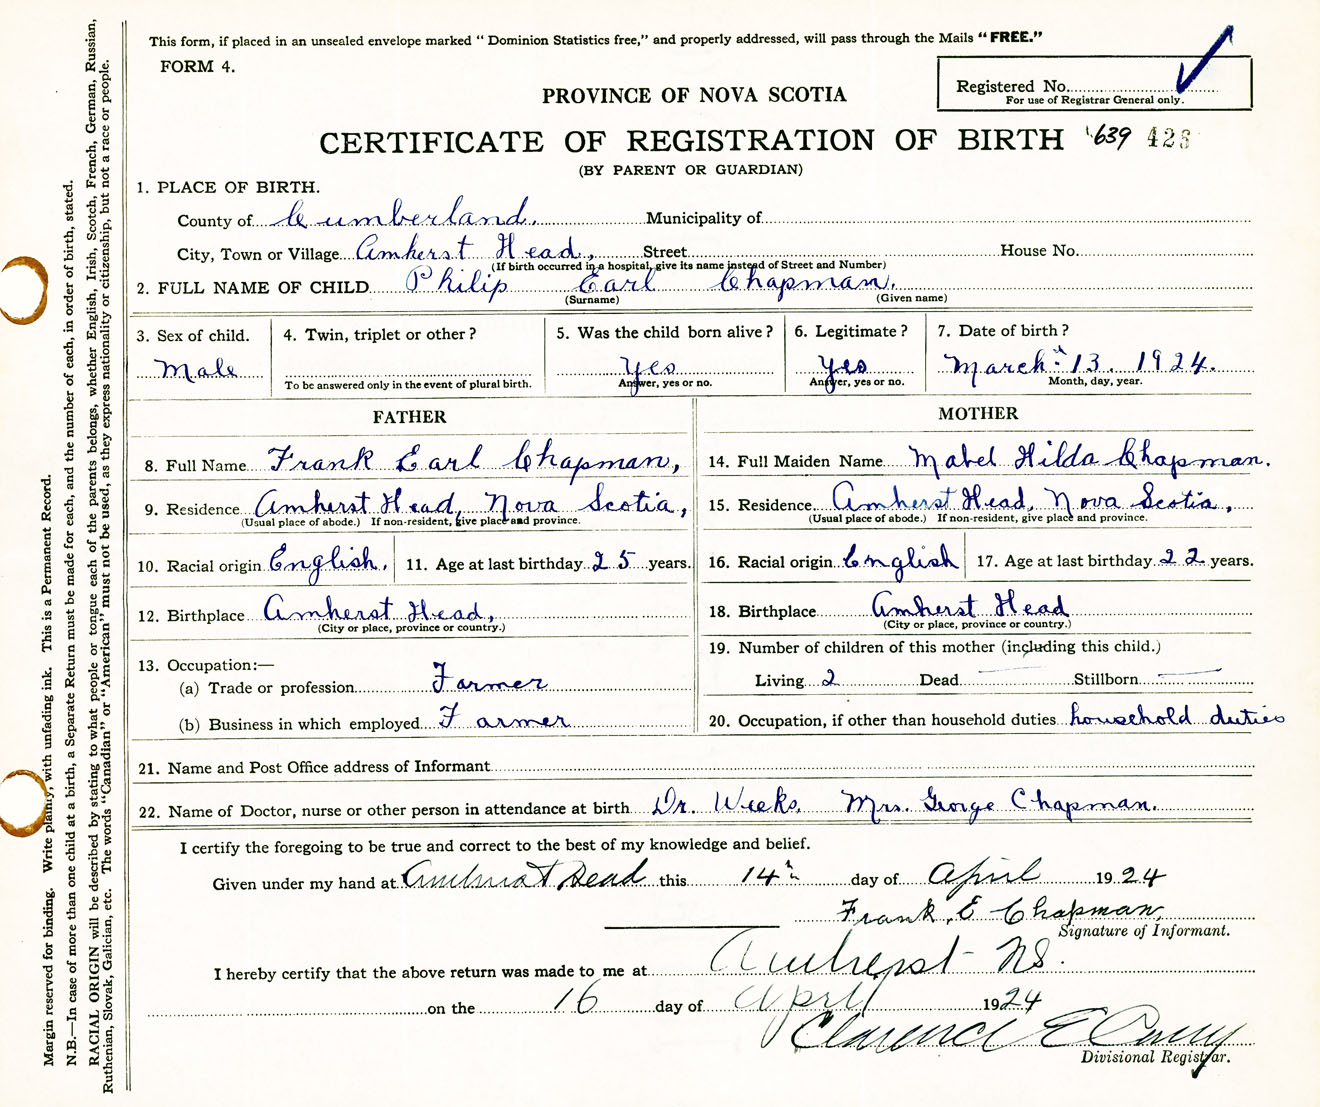 This form, if placed in an unsealed envelope marked "Dominion Statistics free," and properly addressed, will pass through the Mails "FREE."
FORM 4.
Registered No.
For use of Registrar General only.
PROVINCE OF NOVA SCOTIA
CERTIFICATE OF REGISTRATION OF BIRTH 639 423
(BY PARENT OR GUARDIAN)
1. PLACE OF BIRTH.
County of Cumberland. Municipality of
City, Town or Village Amherst Head, Street House No.
(If birth occurred in a hospital, give its name instead of Street and Number)
2. FULL NAME OF CHILD Philip Earl Chapman.
(Surname) (Given name)
3. Sex of child. 4. Twin, triplet or other? 5. Was the child born alive? 6. Legitimate? 7. Date of birth?
Male Yes Yes March 13. 1924.
To be answered only in the event of plural birth. Answer, yes or no. Answer, yes or no. Month, day, year.
FATHER
8. Full Name Frank Earl Chapman,
9. Residence Amherst Head, Nova Scotia,
(Usual place of abode.) If non-resident, give place and province.
10. Racial origin English. 11. Age at last birthday 25 years.
12. Birthplace Amherst Head,
(City or place, province or country.)
13. Occupation:—
(a) Trade or profession Farmer
(b) Business in which employed Farmer
MOTHER
14. Full Maiden Name Mabel Hilda Chapman.
15. Residence Amherst Head, Nova Scotia,
(Usual place of abode.) If non-resident, give place and province.
16. Racial origin English 17. Age at last birthday 22 years.
18. Birthplace Amherst Head
(City or place, province or country.)
19. Number of children of this mother (including this child.)
Living 2 Dead — Stillborn —
20. Occupation, if other than household duties household duties
21. Name and Post Office address of Informant
22. Name of Doctor, nurse or other person in attendance at birth Dr. Weeks, Mrs. George Chapman.
I certify the foregoing to be true and correct to the best of my knowledge and belief.
Given under my hand at Amherst Head this 14th day of April 1924
Frank. E Chapman,
Signature of Informant.
I hereby certify that the above return was made to me at Amherst NS.
on the 16 day of April 1924
Clarence E
Divisional Registrar.
Margin reserved for binding. Write plainly, with unfading ink. This is a Permanent Record.
N.B.—In case of more than one child at a birth, a Separate Return must be made for each, and the number of each, in order of birth, stated.
RACIAL ORIGIN will be described by stating to what people or tongue each of the parents belongs, whether English, Irish, Scotch, French, German, Russian,
Ruthenian, Slovak, Galician, etc. The words "Canadian" or "American" must not be used, as they express nationality or citizenship, but not a race or people.